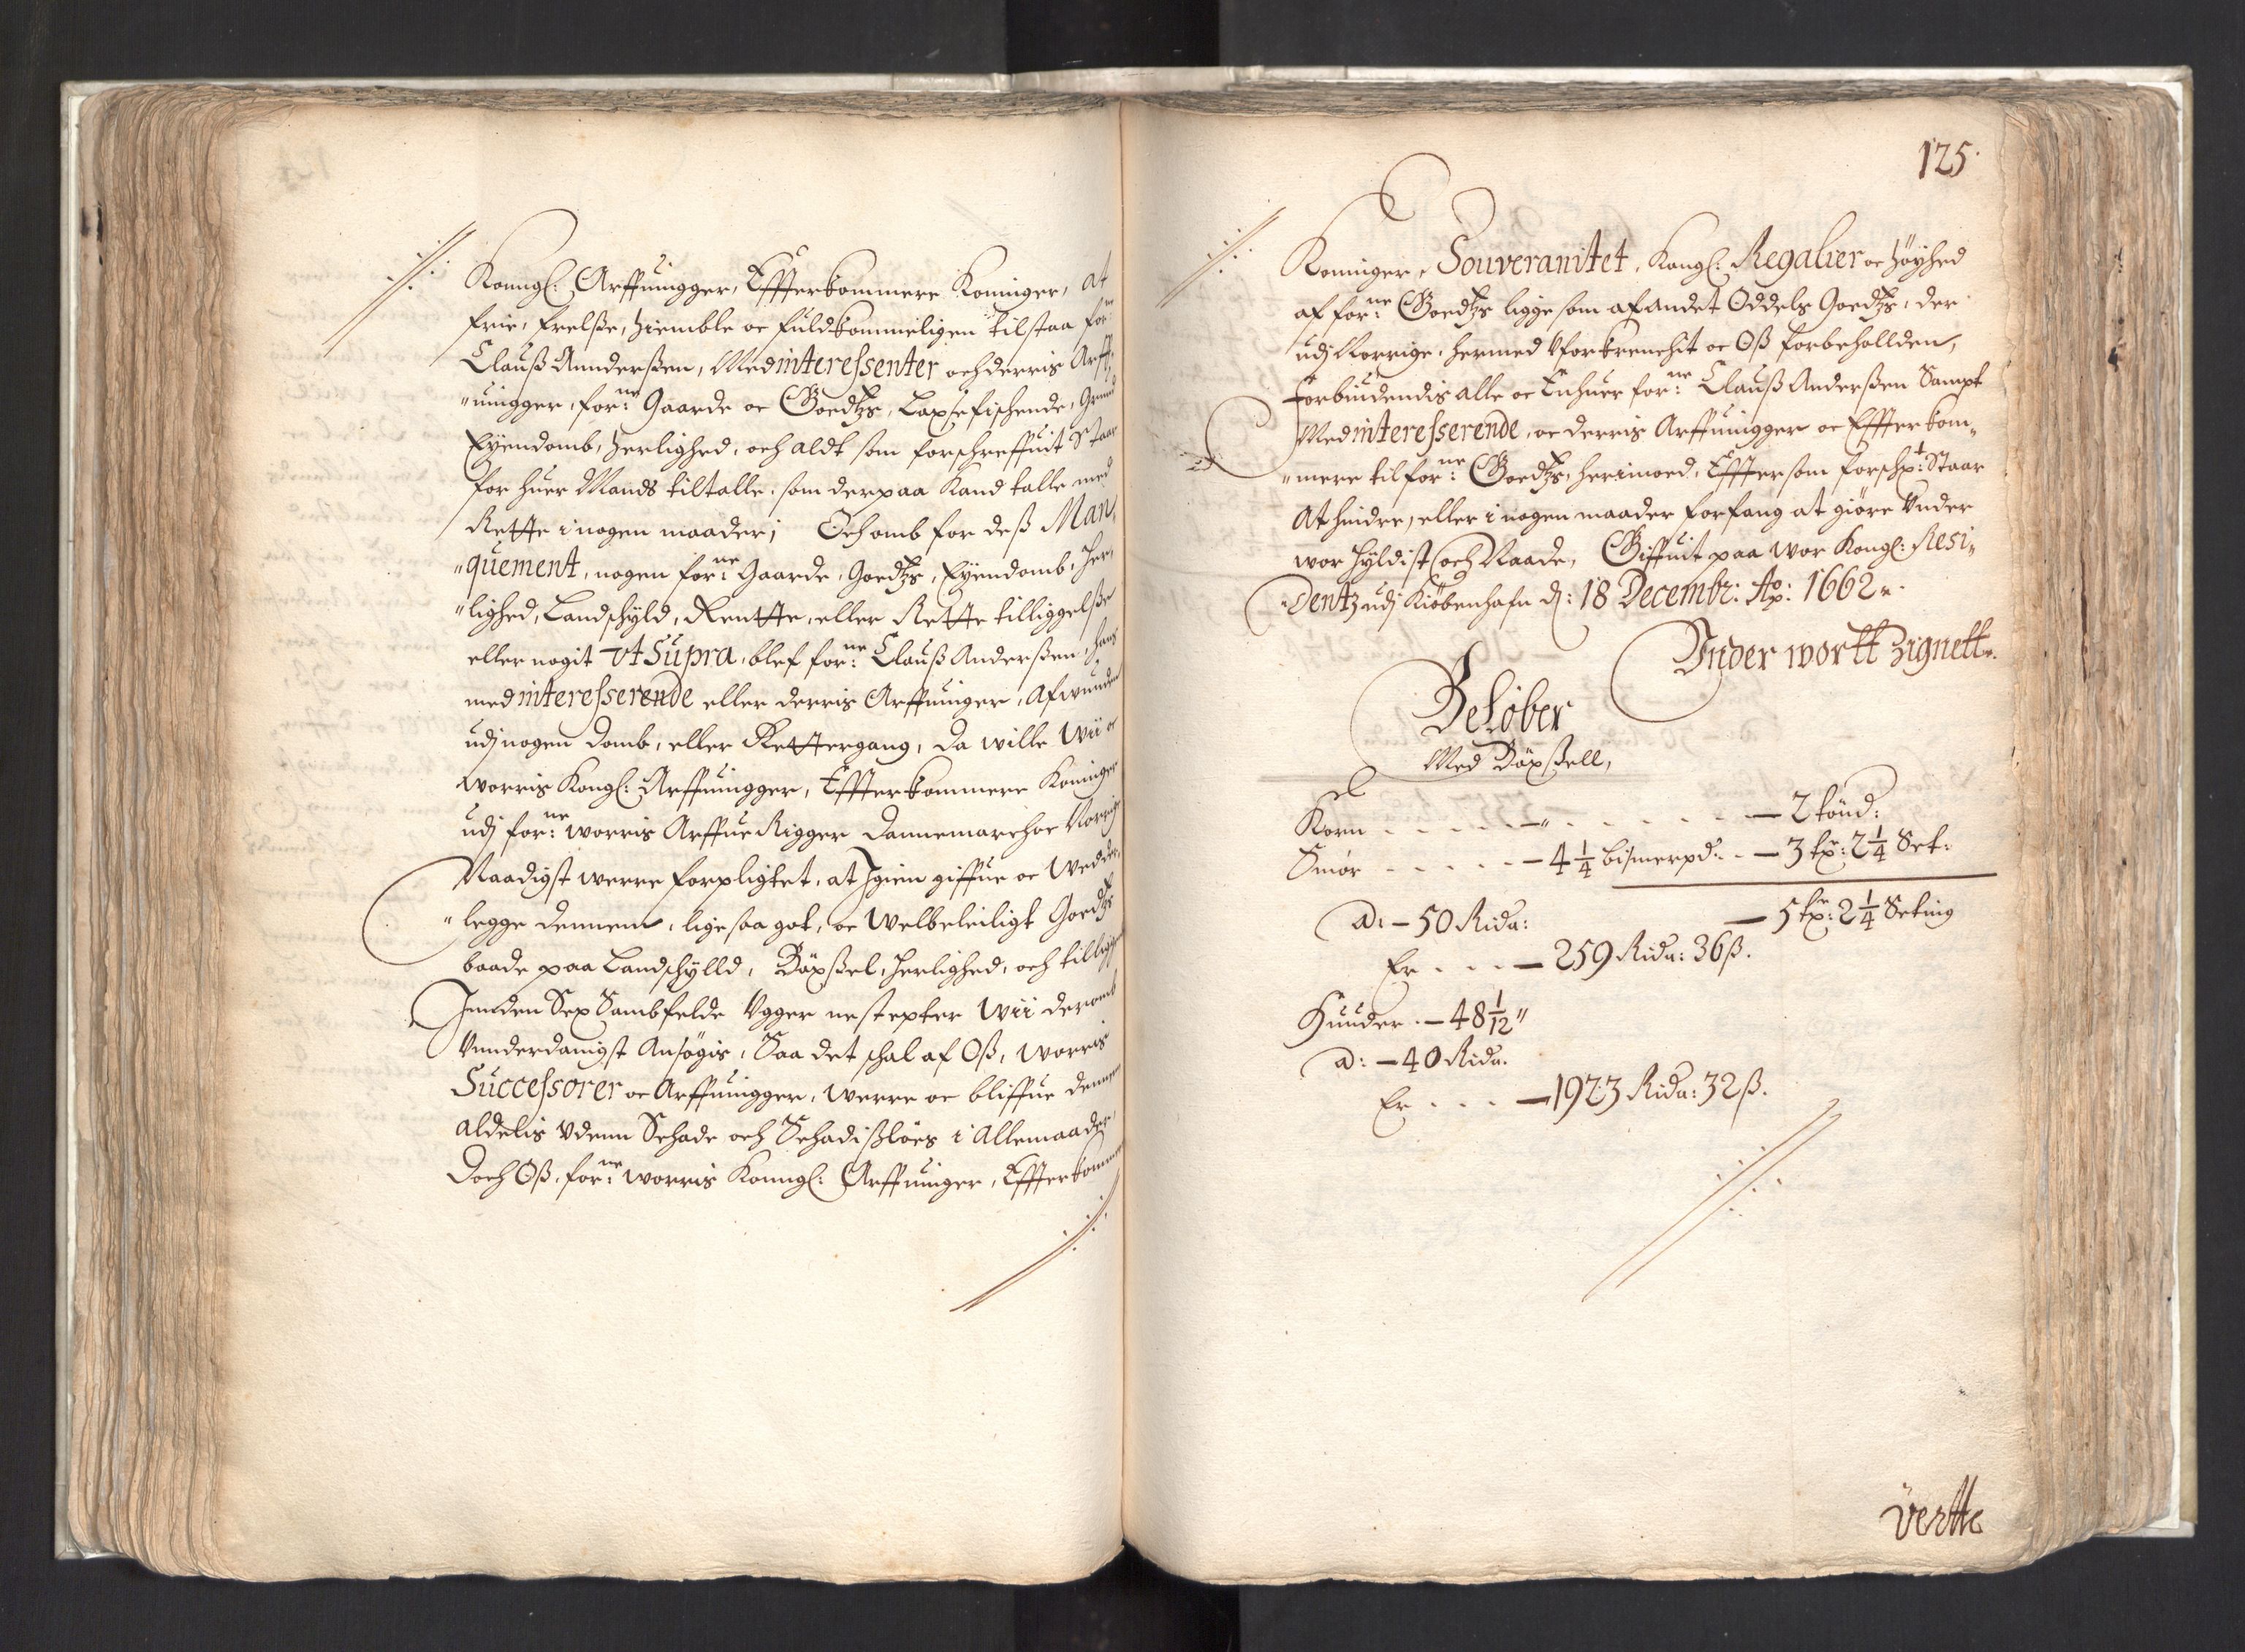 Konngl: Arffuingger, Effterkommere Koninger, at
frie, frelße, hiemble oc fuldkommeligen tilstaa for:
Clauß Annderßen, Med interessenter och derris Arff„
„uingger, for:ne Gaarde oc Goedtzs, Laxsefischende, Grund
Eyendomb, Herlighed, och aldt som forschreffuit Staar
for huer Mands tiltalle, som derpaa Kand talle med
Rette i nogen maader; Och omb for deß Man„
„quement, nogen for:ne Gaarde, Goedtzs, Eyendomb, Her„
„lighed, Landschyld, Rentte, eller Rette tilliggelße
eller nogit vt Supra, blef for:ne Clauß Anderßen, hans
med interesserende eller derris Arffuinger, Afwunden
udj nogen domb, eller Rettergang, da wille Wii oc
worris Kongl: Arffuingger, Effterkommere Koninger
udj for:ne worris Arffue Rigger Dannemarch oc Norrige
Naadigst werre forpligtet, at Igien giffue oc Wedder„
„legge dennem, lige saa got, oc Welbeleiligt Goedtzs
baade paa Landschylld, Böxßel, Herlighed, och tilligg
Innden Sex Sambfelde Vgger nest epter Wii deromb
Vnnderdanigst Ansøgis, Saa det schal af Oß, worris
Successorer oc Arffuingger, werre oc bliffue dennem
aldelis Vdenn Schade och Schadißlöes i Allemaader,
Doch Oß, for:ne worris Konngl: Arffuinger, Effterkomm
125.
Koninger, Souveranitet, Kongl: Regalier oc Höyhed
af for:ne Goedtzs ligge som af andet Oddels Goedtzs, der
udj Norrige, hermed Vforkrenchit oc Oß forbeholden,
Forbiudendis alle oc Enhuer for:ne Clauß Anderßen Sampt
Med interesserende, oc derris Arffuingger oc Effterkom„
„mere til for:ne Goedtzs, herimoed, Efftersom forschp:t Staar
At hindre, eller i nogen maader forfang at giöre Vnder
wor Hyldist och Naade, Giffuit paa Wor Kongl: Resi„
„dentz udj Kiöbenhafn d: 18 Decembr: Ao: 1662.
Vnder wortt Zignett.
Beløber
Med Böxßell,
Korn . . . . . — „ . . . . . . — 2 tönd:
Smör . . . . . — 4 1/4 bismerpd: . — 3 tp: 2 1/4 Set:
— 5 tp: 2 1/4 Seting
a: — 50 Rida:
Er . . . — 259 Rida: 36 ß.
Huuder . — 48 1/12 „
a: — 40 Rida.
Er . . . — 1923 Rida: 32 ß.
vertte